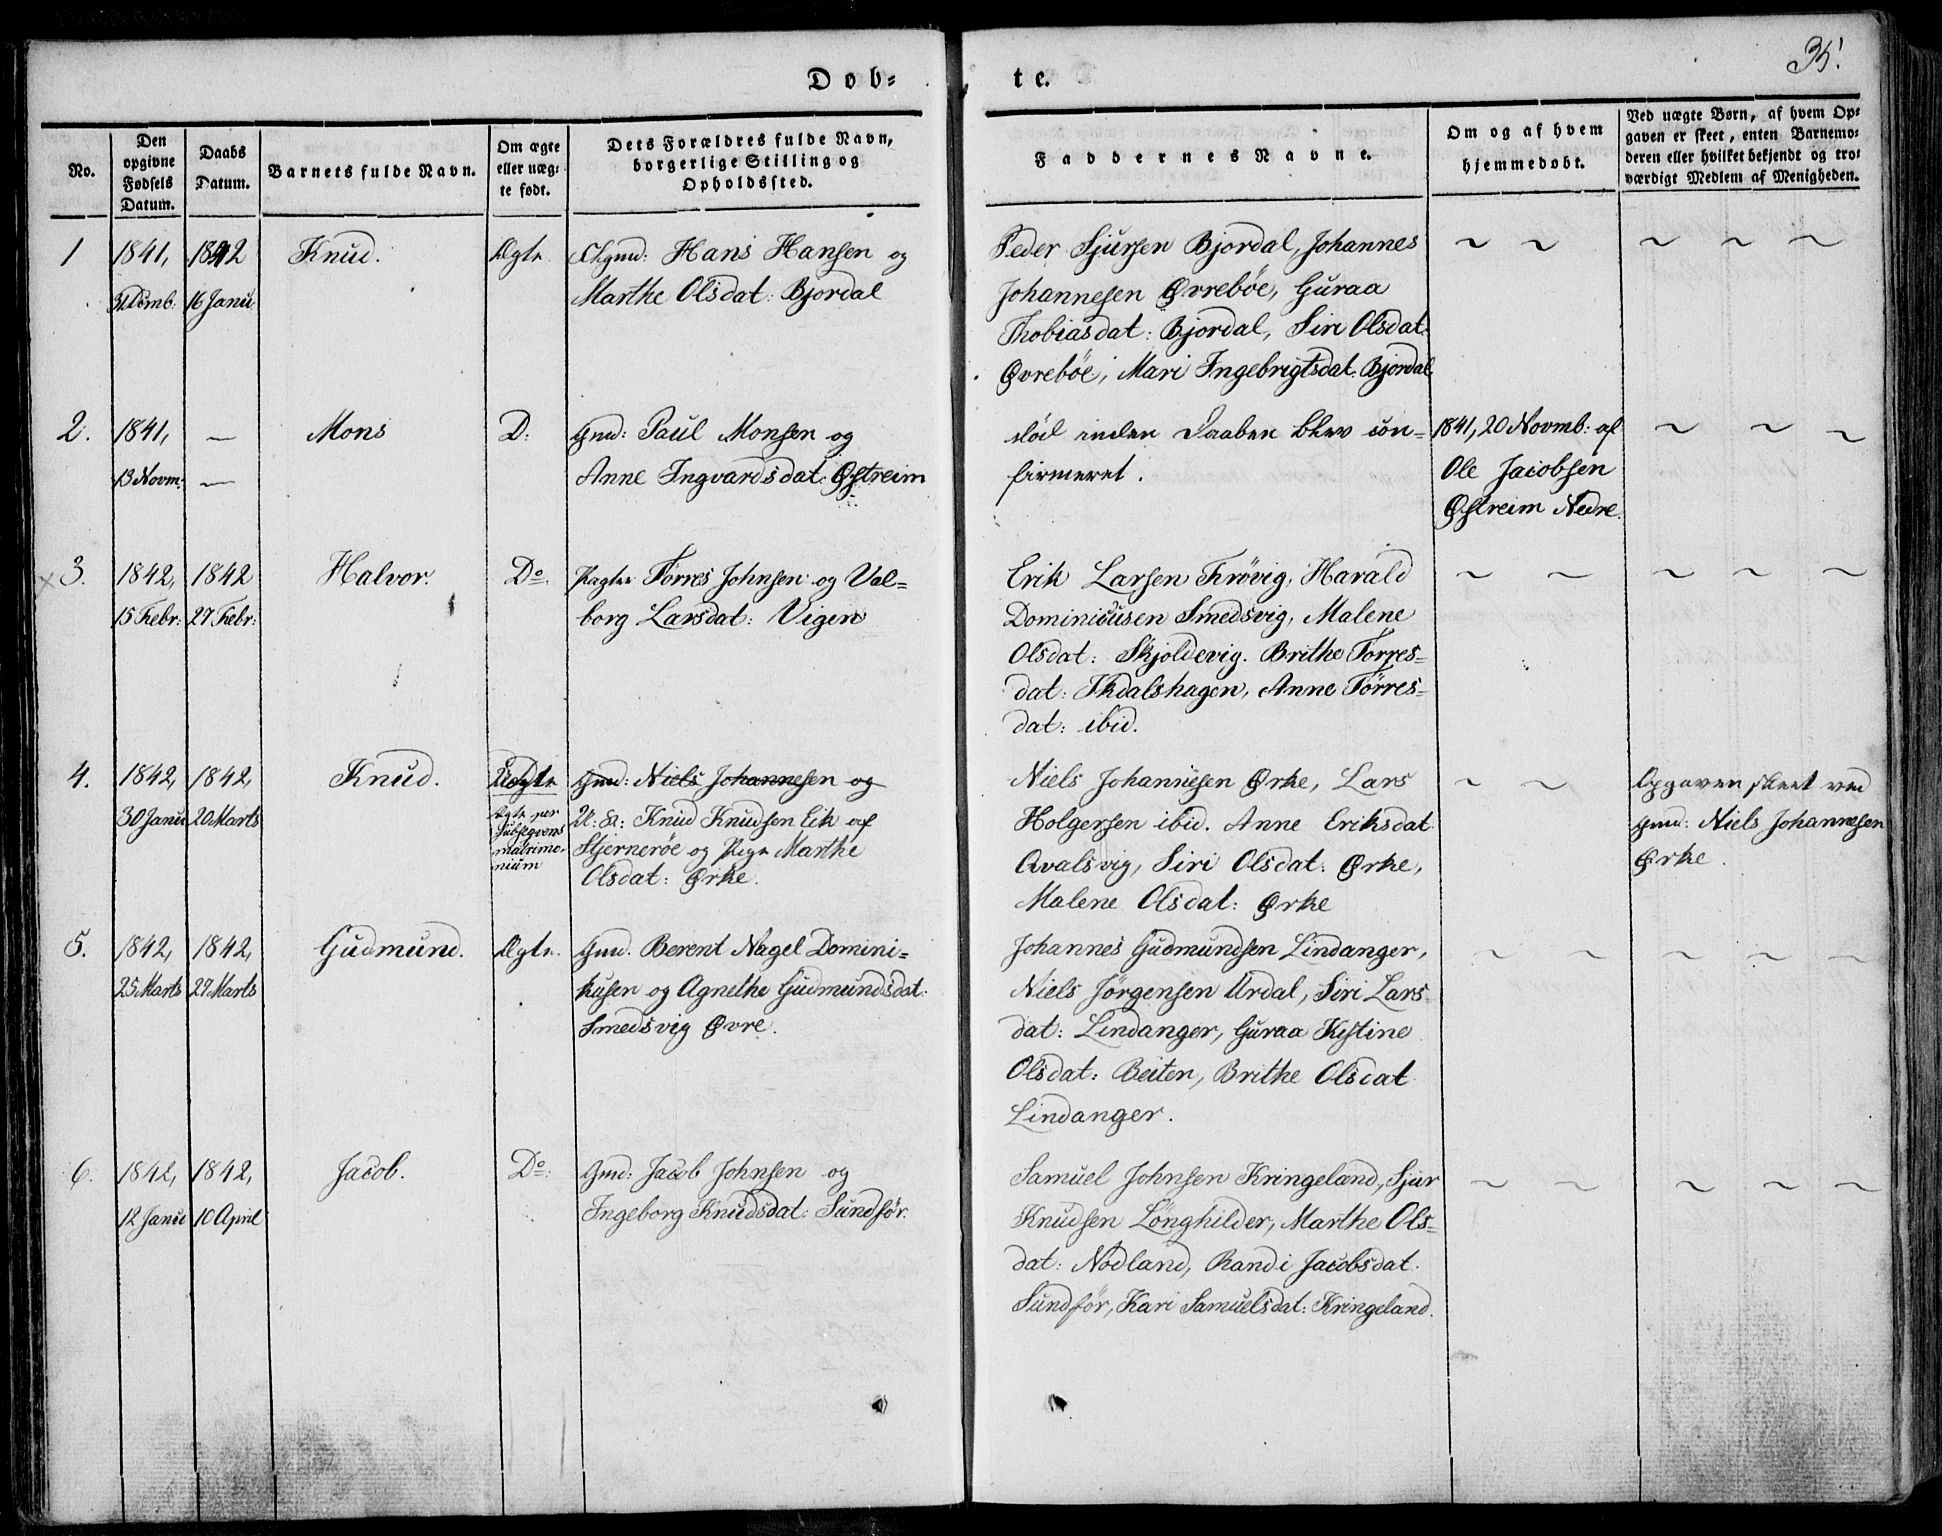 35.
Døb=
te.
No.
Den
opgivne
Fødsels
Datum.
Daabs
Datum.
Barnets fulde Navn.
Om ægte
eller uæg=
te født.
Dets Forældres fulde Navn,
borgerlige Stilling og
Opholdssted.
Faddernes Navne.
Om og af hvem
hjemmedøbt.
Ved uægte Børn, af hvem Op=
gaven er skeet, enten Barnemo=
deren eller hvilket bekjendt og tro=
værdigt Medlem af Menigheden.
1
1841,
31 Decmb.
1842
16 Janu.
Knud.
Ægte.
Hans Hansen og
Marthe Olsdat: Bjordal
Peder Sjursen Bjordal, Johannes
Johannesen Øvrebøe, Guraa
Thobiasdat: Bjordal, Siri Olsdat:
Øvrebøe, Mari Ingebrigtsdat: Bjordal
~ ~
~ ~ ~
2.
1841,
13 Novm:
—
—
Mons
D:
Gmd: Paul Monsen og
Anne Ingvardsdat: Østreim
død inden Daaben blev con=
firmeret.
1841, 20 Novmb: af
Ole Jacobsen
Østreim Nedre.
~ ~ ~
3.
1842,
15 Febr:
1842
27 Febr:
Halvor.
Do:
Tørres Johnsen og Val=
borg Larsdat: Vigen
Erik Larsen Trøvig, Harald
Dominicusen Smedsvig, Malene
Olsdat: Skjoldevig. Brithe Torres=
dat: Ekdalshagen, Anne Tørres=
dat: ibid.
~ ~
~ ~ ~
4.
1842,
30 Janu
1842,
20 Marts
Knud.
Uægte
Ægte per
subseqvens
matrimo-
nium
Gmd: Niels Johannesen og
U: K: Knud Knudsen Eik af
Stjernerøe og Pige Marthe
Olsdat: Ørke.
Niels Johannesen Ørke, Lars
Holgersen ibid. Anne Eriksdat
Qvalsvig, Siri Olsdat: Ørke,
Malene Olsdat: Ørke
~ ~
Opgaven skeet ved
Gmd: Niels Johannesen
Ørke.
5.
1842,
25 Marts
1842,
27 Marts
Gudmund.
Ægte.
Gmd. Berent Nagel Domini=
kusen og Agnethe Gudmundsdat:
Smedsvig Øvre.
Johannes Gudmundsen Lindanger,
Niels Jørgensen Urdal, Siri Lars
dat: Lindanger, Guraa Kistine
Olsdat: Beiten, Brithe Olsdat
Lindanger.
~ ~
~ ~ ~
6.
1842,
12 Janu
1842,
10 April
Jacob.
Do:
Gmd: Jacob Johnsen og
Ingeborg Knudsdat: Sundfør.
Samuel Johnsen Kringeland, Sjur
Knudsen Lønghilder, Marthe Ols=
dat: Nodland, Randi Jacobsdat.
Sundfør, Kari Samuelsdat: Kringeland.
~ ~
~ ~ ~